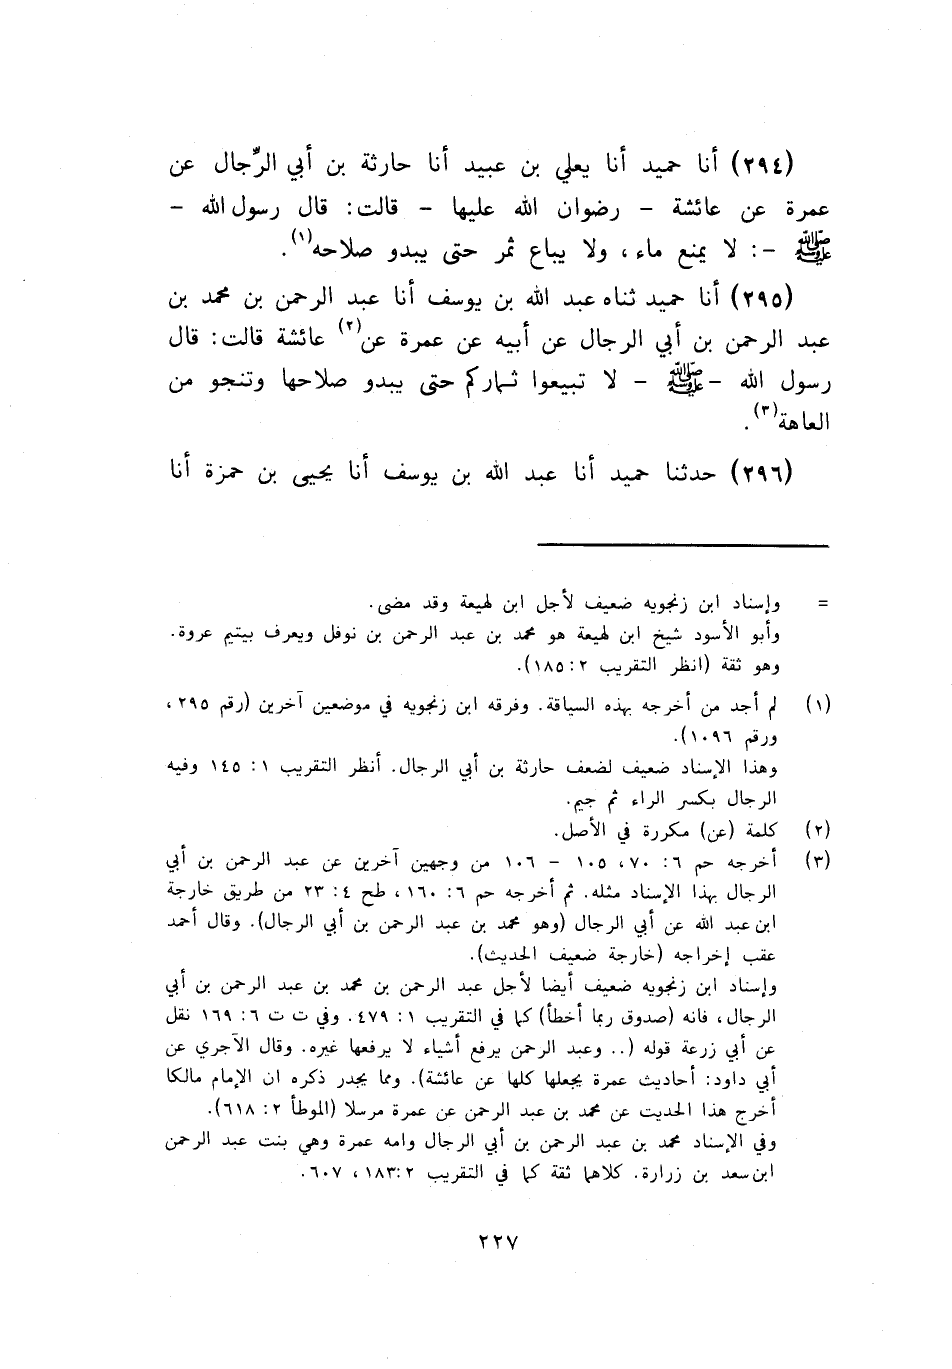 (٢٩٤) أنا حميد أنا يعلي بن عبيد أنا حارثة بن أبي الرِّجال عن
عمرة عن عائشة - رضوان الله عليها - قالت: قال رسول الله -
ﷺ -: لا يمنع ماء، ولا يباع ثمر حتى يبدو صلاحه(١).
(٢٩٥) أنا حميد ثناه عبد الله بن يوسف أنا عبد الرحمن بن محمد بن
عبد الرحمن بن أبي الرجال عن أبيه عن عمرة عن(٢) عائشة قالت: قال
رسول الله - ﷺ - لا تبيعوا ثماركم حتى يبدو صلاحها وتنجو من
العاهة(٣).
(٢٩٦) حدثنا حميد أنا عبد الله بن يوسف أنا يحيى بن حمزة أنا
= وإسناد ابن زنجويه ضعيف لأجل ابن لهيعة وقد مضى.
وأبو الأسود شيخ ابن لهيعة هو محمد بن عبد الرحمن بن نوفل ويعرف بيتيم عروة.
وهو ثقة (انظر التقريب ٢: ١٨٥).
(١) لم أجد من أخرجه بهذه السياقة. وفرقه ابن زنجويه في موضعين آخرين (رقم ٢٩٥،
ورقم ١٠٩٦).
وهذا الإسناد ضعيف لضعف حارثة بن أبي الرجال. أنظر التقريب ١: ١٤٥ وفيه
الرجال بكسر الراء ثم جيم.
(٢) كلمة (عن) مكررة في الأصل.
(٣) أخرجه حم ٦: ٧٠، ١٠٥ - ١٠٦ من وجهين آخرين عن عبد الرحمن بن أبي
الرجال بهذا الإسناد مثله. ثم أخرجه حم ٦: ١٦٠، طح ٤: ٢٣ من طريق خارجة
ابن عبد الله عن أبي الرجال (وهو محمد بن عبد الرحمن بن أبي الرجال). وقال أحمد
عقب إخراجه (خارجة ضعيف الحديث).
وإسناد ابن زنجويه ضعيف أيضا لأجل عبد الرحمن بن محمد بن عبد الرحمن بن أبي
الرجال، فانه (صدوق ربما أخطأ) كما في التقريب ١: ٤٧٩. وفي ت ت ٦: ١٦٩ نقل
عن أبي زرعة قوله (.. وعبد الرحمن يرفع أشياء لا يرفعها غيره. وقال الآجري عن
أبي داود: أحاديث عمرة يجعلها كلها عن عائشة). ومما يجدر ذكره ان الإمام مالكا
أخرج هذا الحديث عن محمد بن عبد الرحمن عن عمرة مرسلا (الموطأ ٢: ٦١٨).
وفي الإسناد محمد بن عبد الرحمن بن أبي الرجال وامه عمرة وهي بنت عبد الرحمن
ابن سعد بن زرارة. كلاهما ثقة كما في التقريب ٢: ١٨٣، ٦٠٧.
٢٢٧